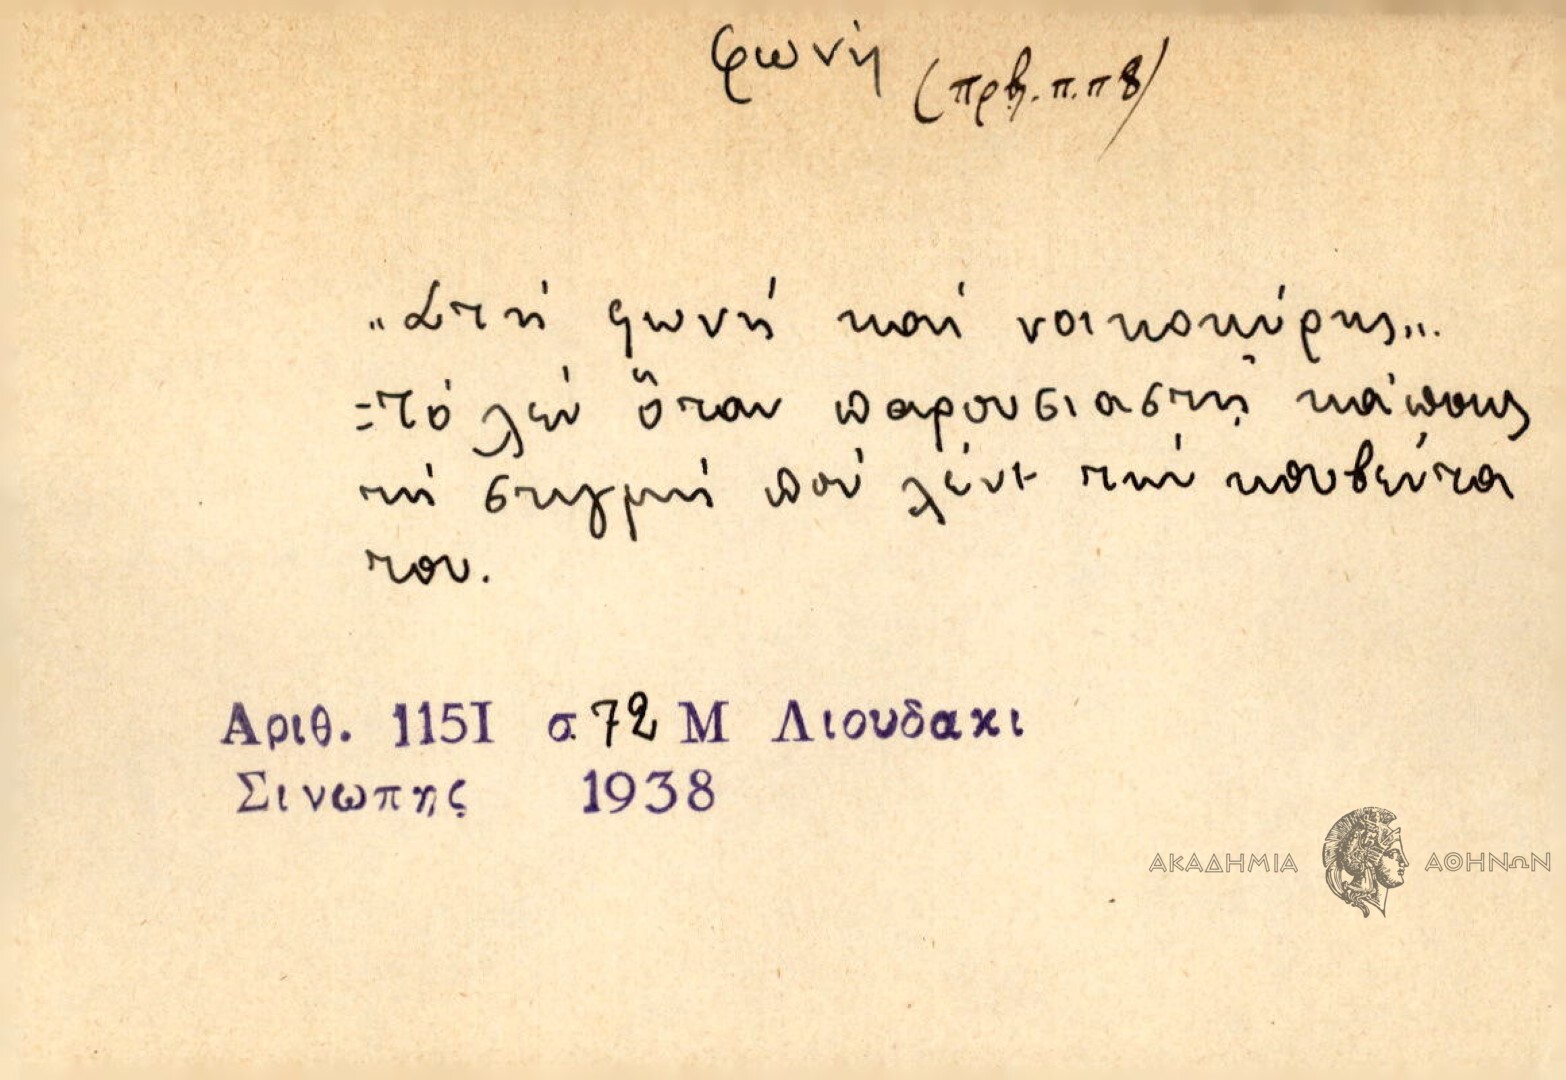 φωνή
(πρβ. π.π 8)
„Στή φωνή καί νοικοκύρης„.
=Τό λέν ὅταν παρουσιαστῇ κάποιος
τή στιγμή πού λένε τήν κουβέντα
του.
Αριθ. 115Ι σ 72 Μ Λιουδακι
Σινωπης 1938
ΑΚΑΔΗΜΙΑ ΑΘΗΝΩΝ